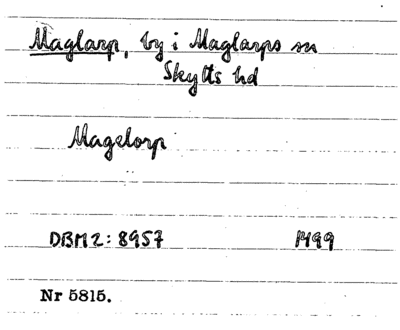 Maglarp, by i Maglarps sn
Skytts hd
Magelorp
DBM2: 8957 1499
Nr 5815.